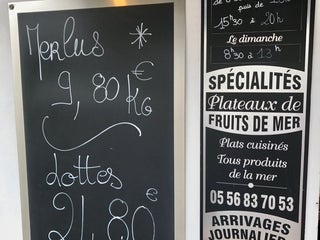 Merlus
9,80€ KG
dottes
21,80€
puis de
15h30 à 20h
Le dimanche
8h30 à 13h
SPÉCIALITÉS
Plateaux de
FRUITS DE MER
Plats cuisinés
Tous produits
de la mer
05 56 83 70 53
ARRIVAGES
JOURNALIERS